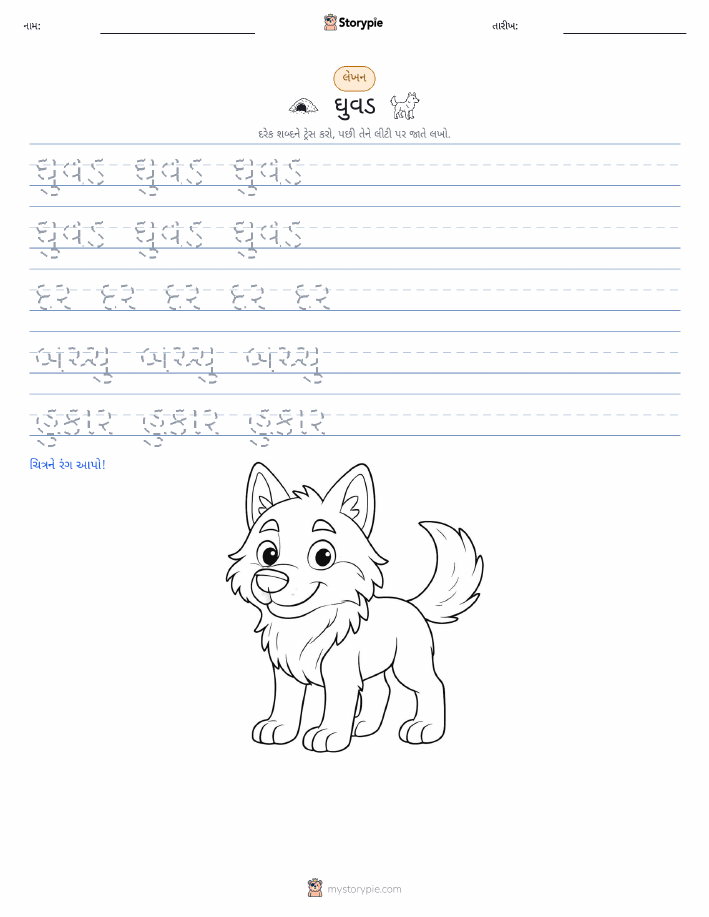 નામ:
Storypie
તારીખ:
લેખન
ઘુવડ
દરેક શબ્દને ટ્રેસ કરો, પછી તેને લીટી પર જાતે લખો.
ઘુવડ ઘુવડ ઘુવડ
ઘુવડ ઘુવડ ઘુવડ
દર દર દર દર દર
બચ્ચું બચ્ચું બચ્ચું
હુકાર હુકાર હુકાર
ચિત્રને રંગ આપો!
mystorypie.com